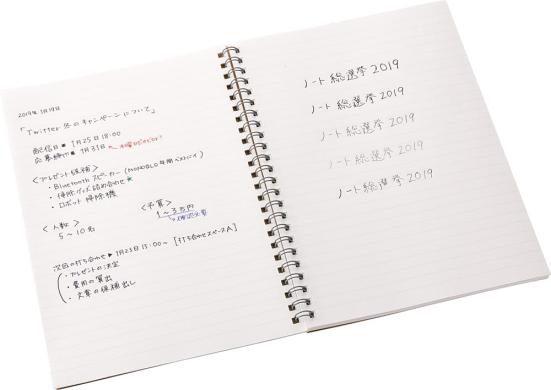 2019年1月19日
「Twitter 冬のキャンペーンについて」
配信日 ■ 1月25日 18:00
応募締切 ■ 1月31日
<プレゼント候補>
・Bluetooth スピーカー (MONOQLO 年間ベストバイ)
・掃除グッズ詰め合わせ ★
・ロボット掃除機
<人数>
5〜10名
<予算>
1〜3万円
次回の打ち合わせ ▶ 1月23日 15:00〜 [打ち合わせスペースA]
・プレゼントの決定
・費用の算出
・文章の候補出し
ノート総選挙2019
ノート総選挙2019
ノート総選挙2019
ノート総選挙2019
ノート総選挙2019